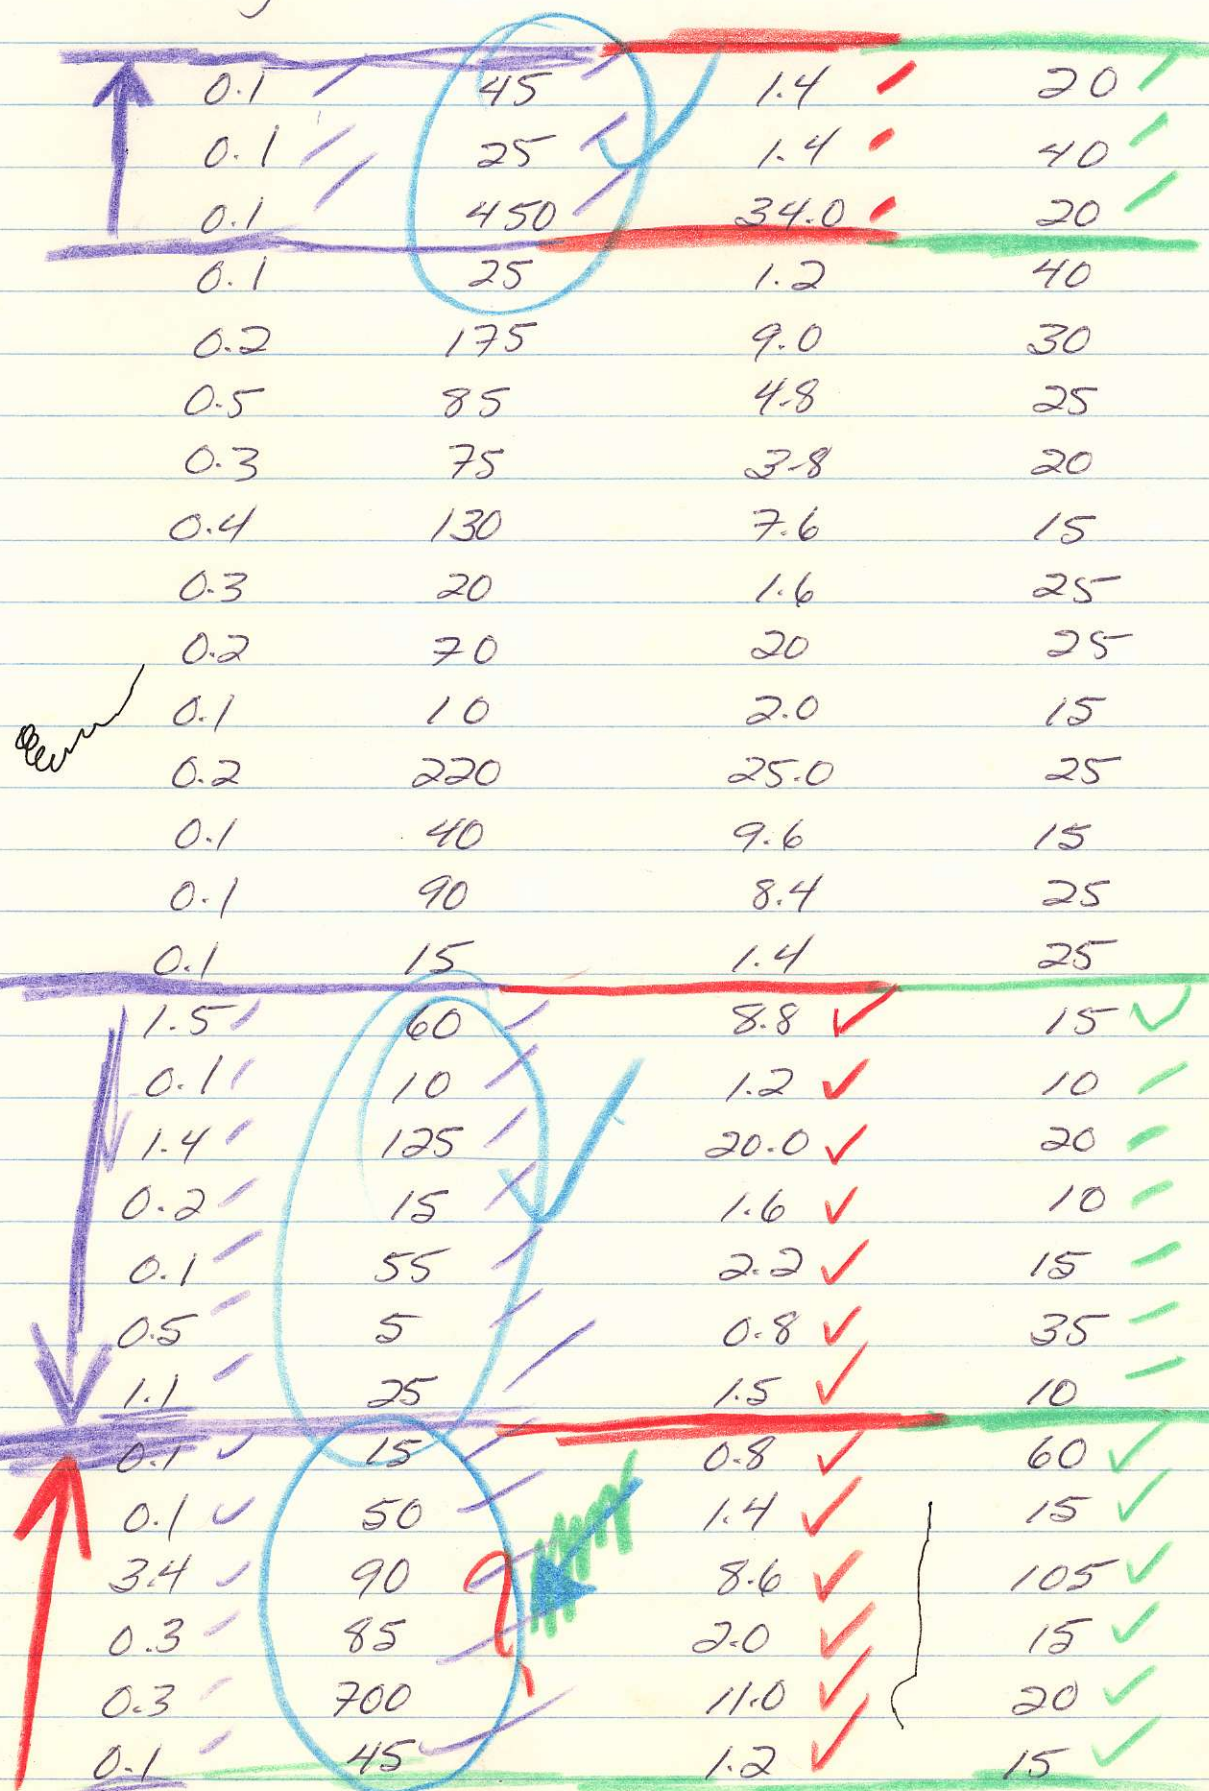 0.1 45 1.4 20
0.1 25 1.4 40
0.1 450 34.0 20
0.1 25 1.2 40
0.2 175 9.0 30
0.5 85 4.8 25
0.3 75 3.8 20
0.4 130 7.6 15
0.3 20 1.6 25
0.2 70 20 25
0.1 10 2.0 15
0.2 220 25.0 25
0.1 40 9.6 15
0.1 90 8.4 25
0.1 15 1.4 25
1.5 60 8.8 15
0.1 10 1.2 10
1.4 125 20.0 20
0.2 15 1.6 10
0.1 55 2.2 15
0.5 5 0.8 35
1.1 25 1.5 10
0.1 15 0.8 60
0.1 50 1.4 15
3.4 90 8.6 105
0.3 85 2.0 15
0.3 700 11.0 20
0.1 45 1.2 15